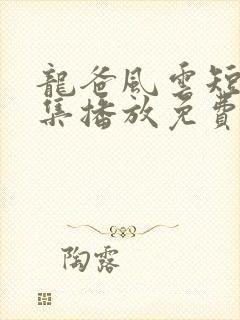 龍爸風雲短
集播放免費
陶露